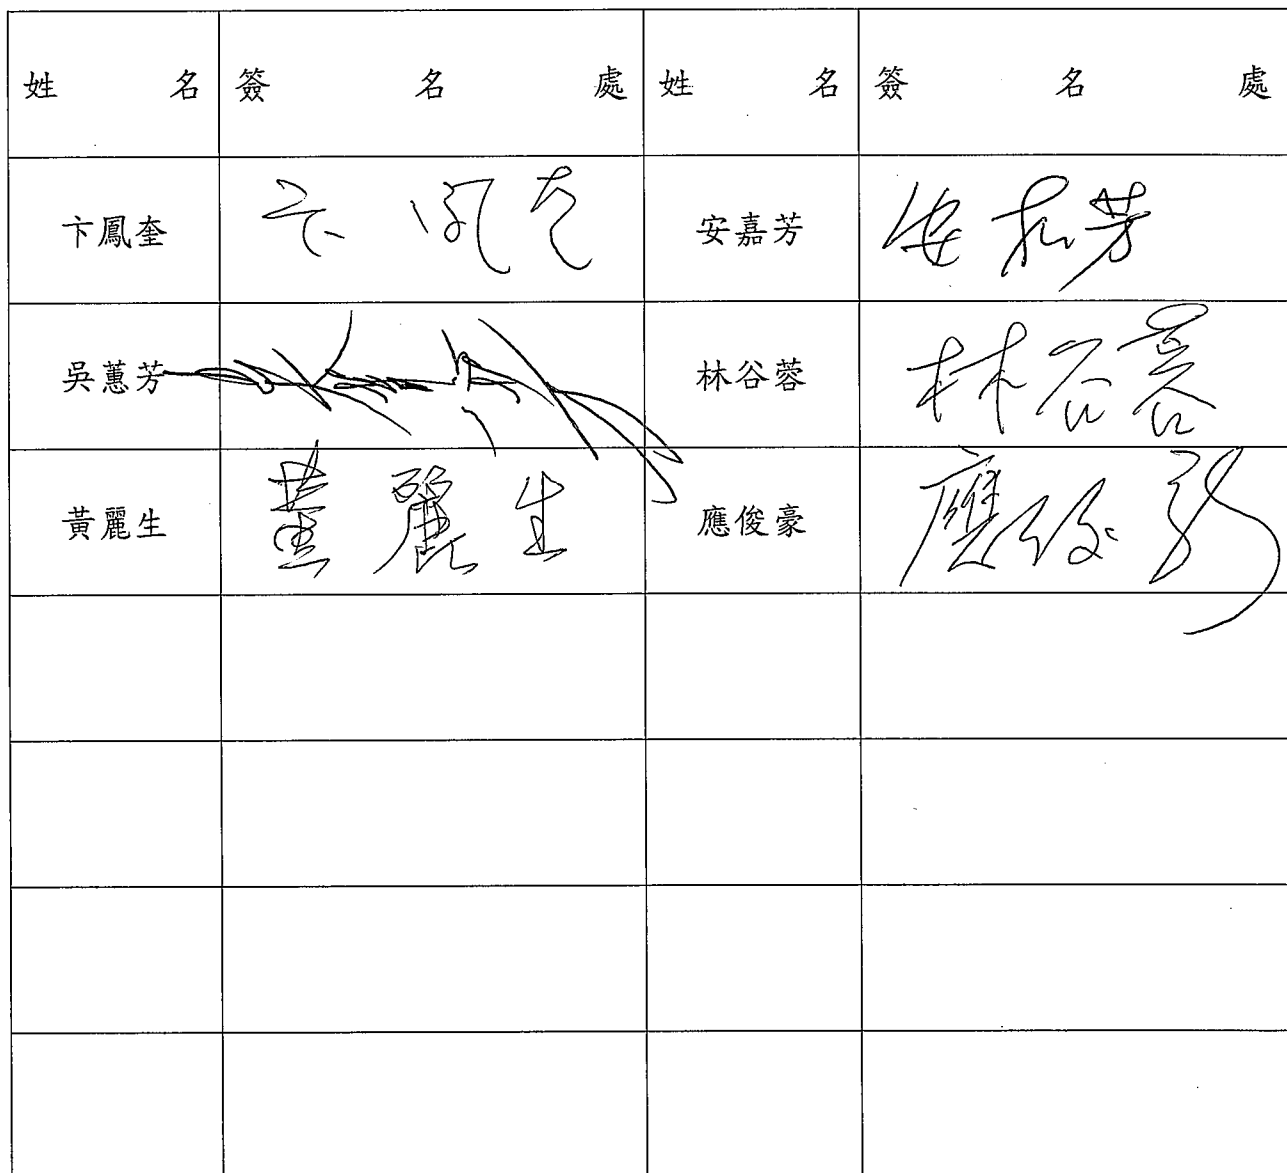 姓名 簽名處 姓名 簽名處
卞鳳奎 卞鳳奎 安嘉芳 安嘉芳
吳蕙芳 林谷蓉 林谷蓉
黃麗生 黃麗生 應俊豪 應俊豪